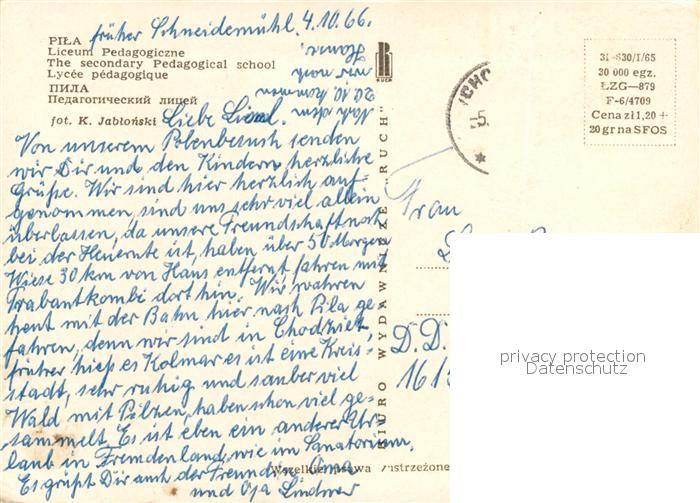 früher Schneidemühl. 4.10.66.
PIŁA
Liceum Pedagogiczne
The secondary Pedagogical school
Lycée pédagogique
ПИЛА
Педагогический лицей
fot. K. Jabłoński
Liebe
Von unserem Polenbesuch senden
wir Dir und den Kindern herzliche
Grüße. Wir sind hier herzlich auf-
genommen, sind uns sehr viel allein
überlassen, da unsere Freundschaft noch
bei der Heuernte ist, haben über 50 Morgen
Wiese 30 km von Haus entfernt fahren mit
Trabantkombi dort hin. Wir wahren
heut mit der Bahn hier nach Pila ge-
fahren, denn wir sind in
früher hieß es Kolmar es ist eine Kreis-
stadt, sehr ruhig und sauber viel
Wald mit Pilzen, haben schon viel ge-
sammelt. Es ist eben ein anderer Ur-
laub in Fremdenland, wie im Sanatorium.
Es grüßt Dir auch der Freund
und Opa Lindner
20.10. kommen
wir nach
RUCH
BIURO WYDAWNICZE „RUCH"
Wszelkie prawa zastrzeżone
5.
31-S30/I/65
30 000 egz.
ŁZG—879
F-6/4709
Cena zł 1,20 +
20 gr na SFOS
Frau
D.D.
privacy protection
Datenschutz